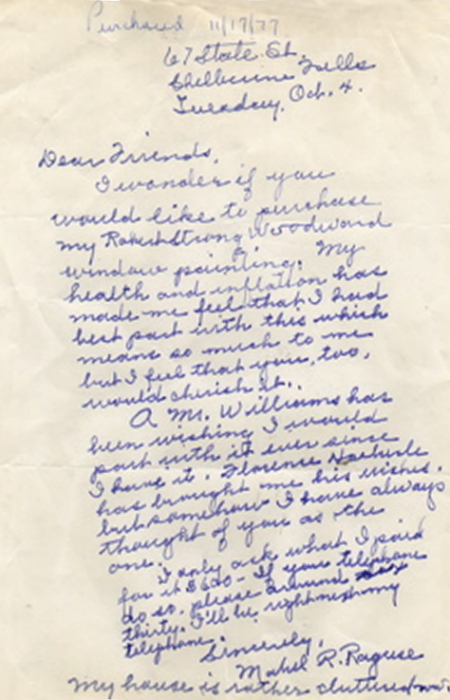 Purchased 11/17/77
67 State St.
Shelburne Falls
Tuesday, Oct. 4.
Dear Friends,
I wonder if you
would like to purchase
my Robert Strong Woodward
window painting. My
health and inflation has
made me feel that I had
best part with this which
means so much to me
but I feel that you, too,
would cherish it.
A Mr. Williams has
been wishing I would
part with it ever since
I have it. Florence
has brought me his wishes.
but somehow I have always
thought of you as the
one.
I only ask what I paid
for it $600 - If you telephone
do so, please around
thirty. I'll be right near my
telephone.
Sincerely,
Mabel R. Raguse
My house is rather cluttered